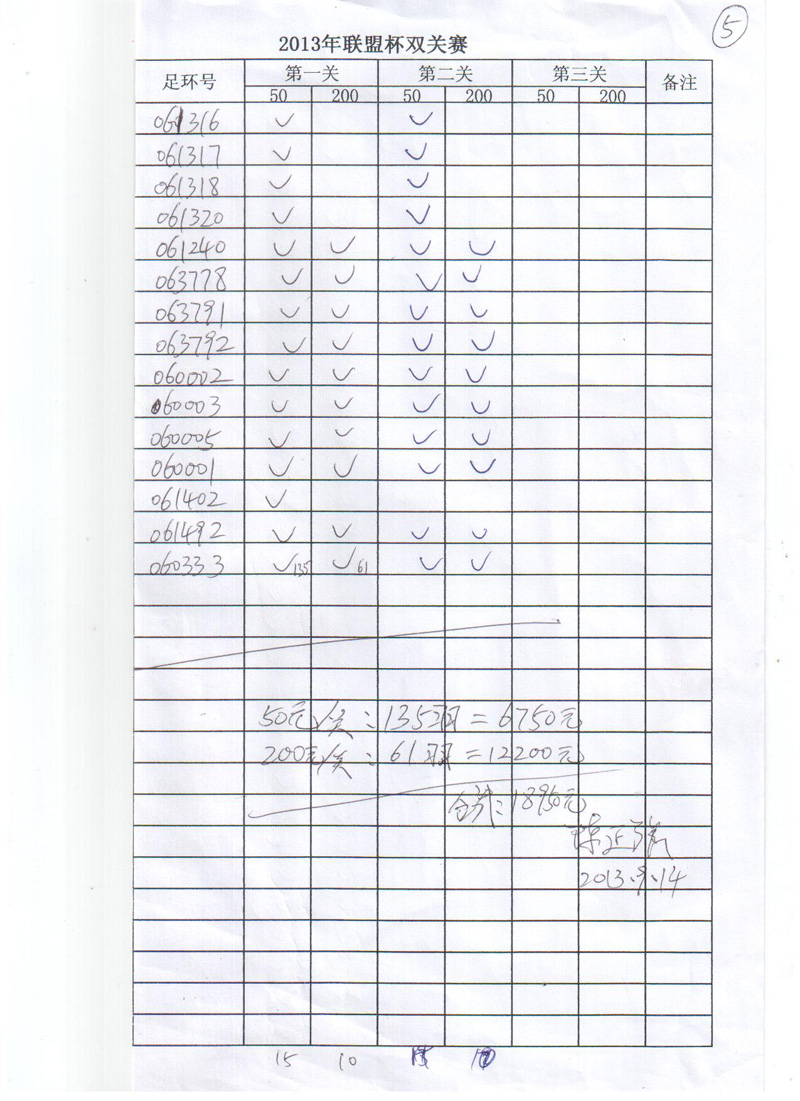 5
2013年联盟杯双关赛
足环号 第一关 第二关 第三关 备注
50 200 50 200 50 200
061316 ✓ ✓
061317 ✓ ✓
061318 ✓ ✓
061320 ✓ ✓
061240 ✓ ✓ ✓ ✓
063778 ✓ ✓ ✓ ✓
063791 ✓ ✓ ✓ ✓
063792 ✓ ✓ ✓ ✓
060002 ✓ ✓ ✓ ✓
060003 ✓ ✓ ✓ ✓
060005 ✓ ✓ ✓ ✓
060001 ✓ ✓ ✓ ✓
061402 ✓
061492 ✓ ✓ ✓ ✓
060333 ✓135 ✓61 ✓ ✓
50元/关:135羽=6750元
200元/关:61羽=12200元
合计:18950元
2013.9.14
15 10